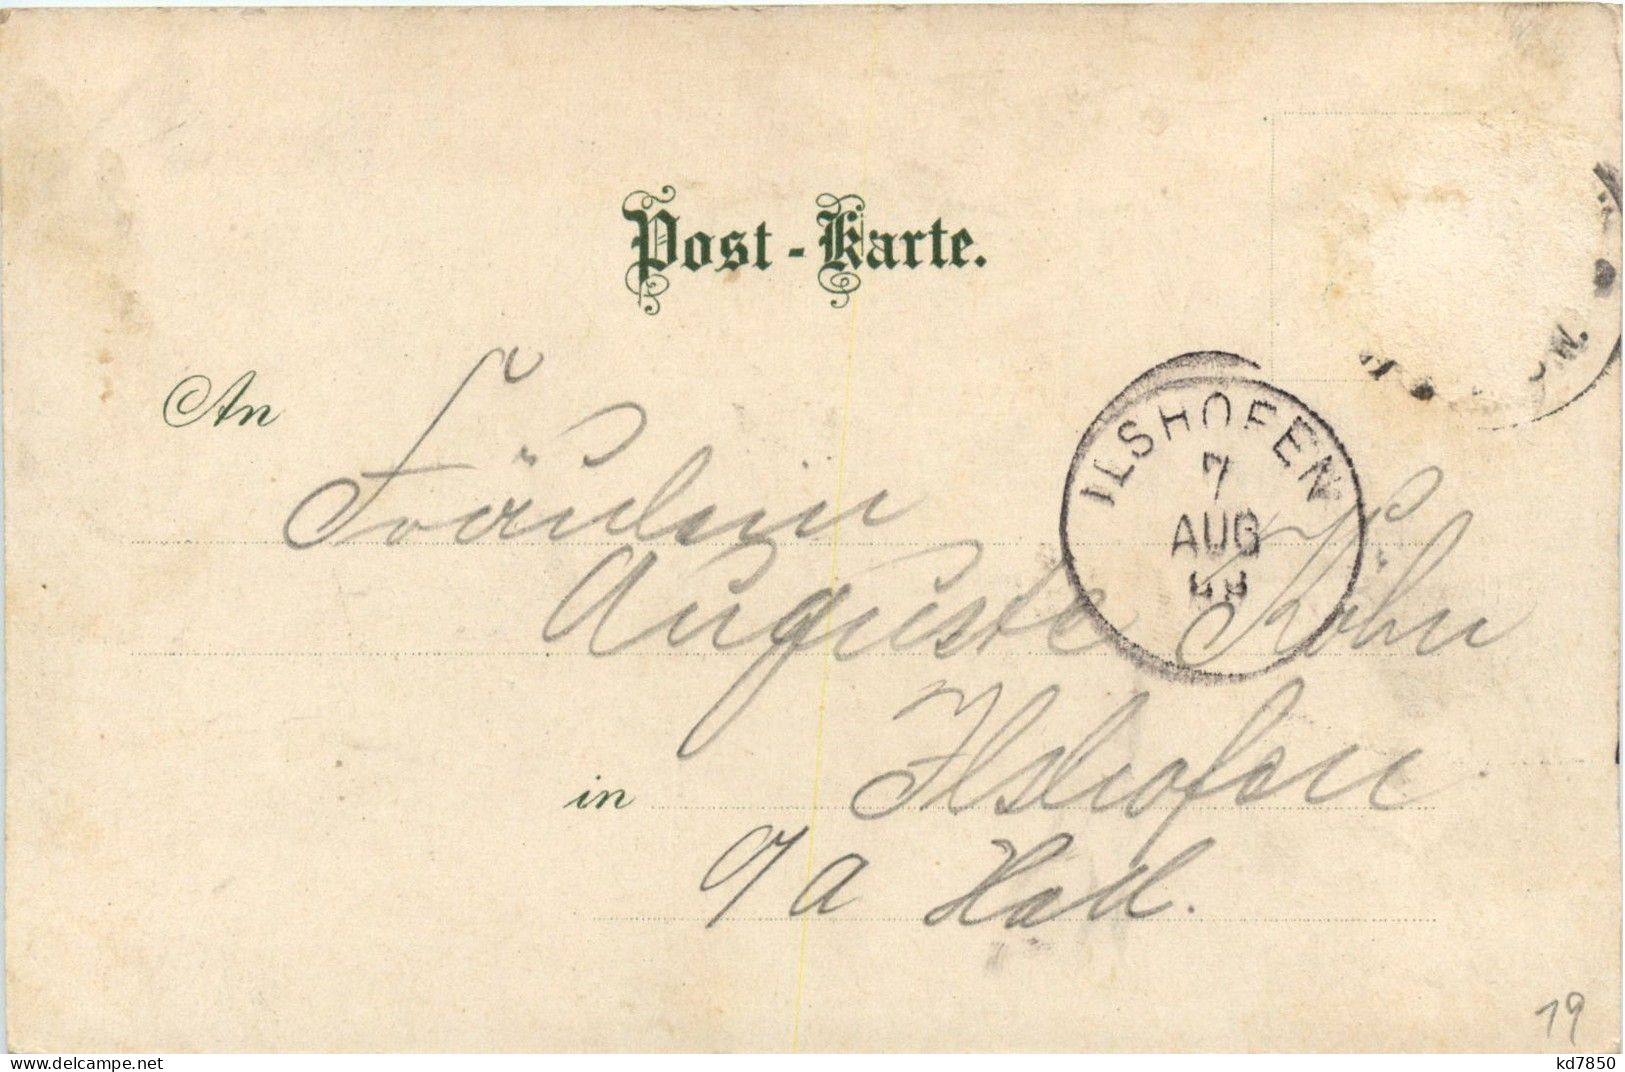 Post-Karte.
An
Fräulein
ILSHOFEN
7
AUG
Auguste Kohn
in Ilshofen
o/a Hall.
19
www.delcampe.net
kd7850